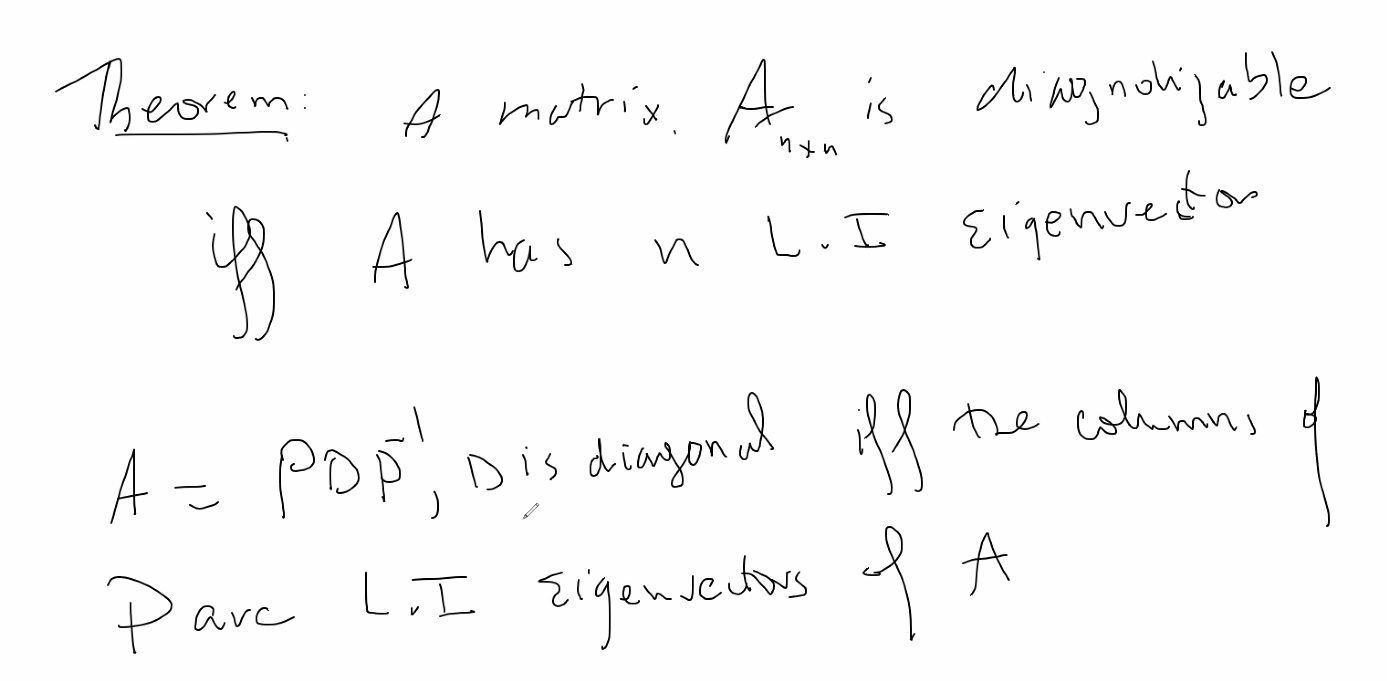 Theorem: A matrix. Aₙₓₙ is diagnolizable
iff A has n L.I Eigenvector
A = PDP⁻¹, D is diagonal iff the columns of
P are L.I Eigenvectors of A